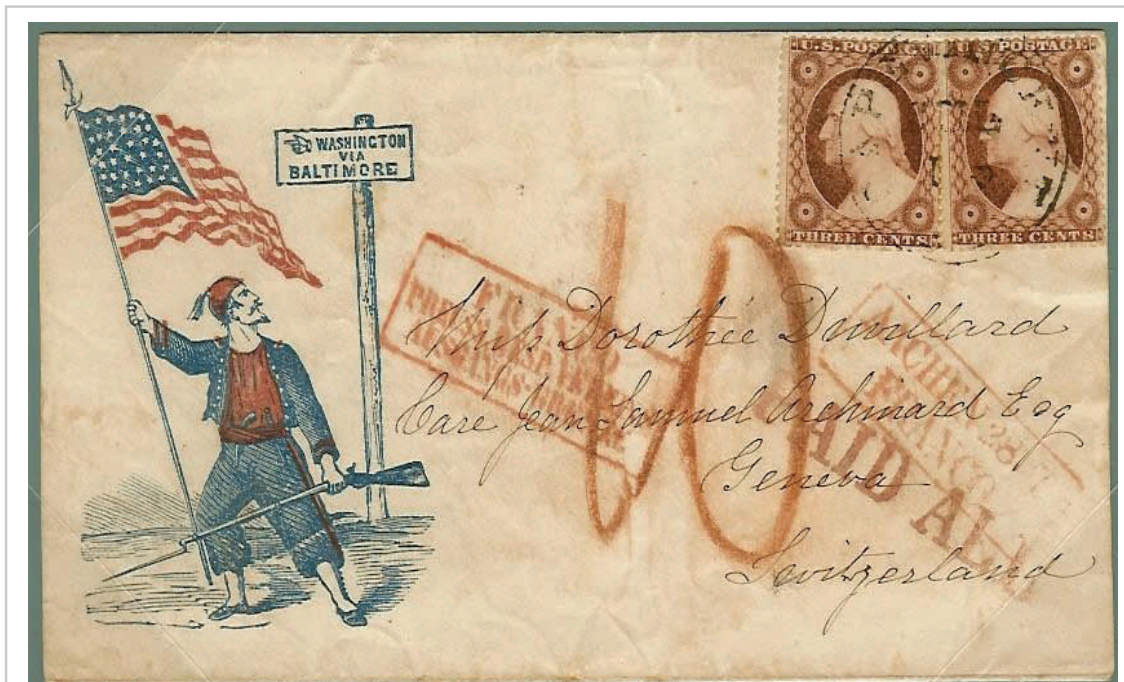 WASHINGTON
VIA
BALTIMORE
U.S. POSTAGE
THREE CENTS
U.S. POSTAGE
THREE CENTS
40
FRANCO
AACHEN
28
FRANCO
PAID ALL
Miss Dorothée Duvillard
Care Jean Samuel Archinard Esq
Geneva
Switzerland